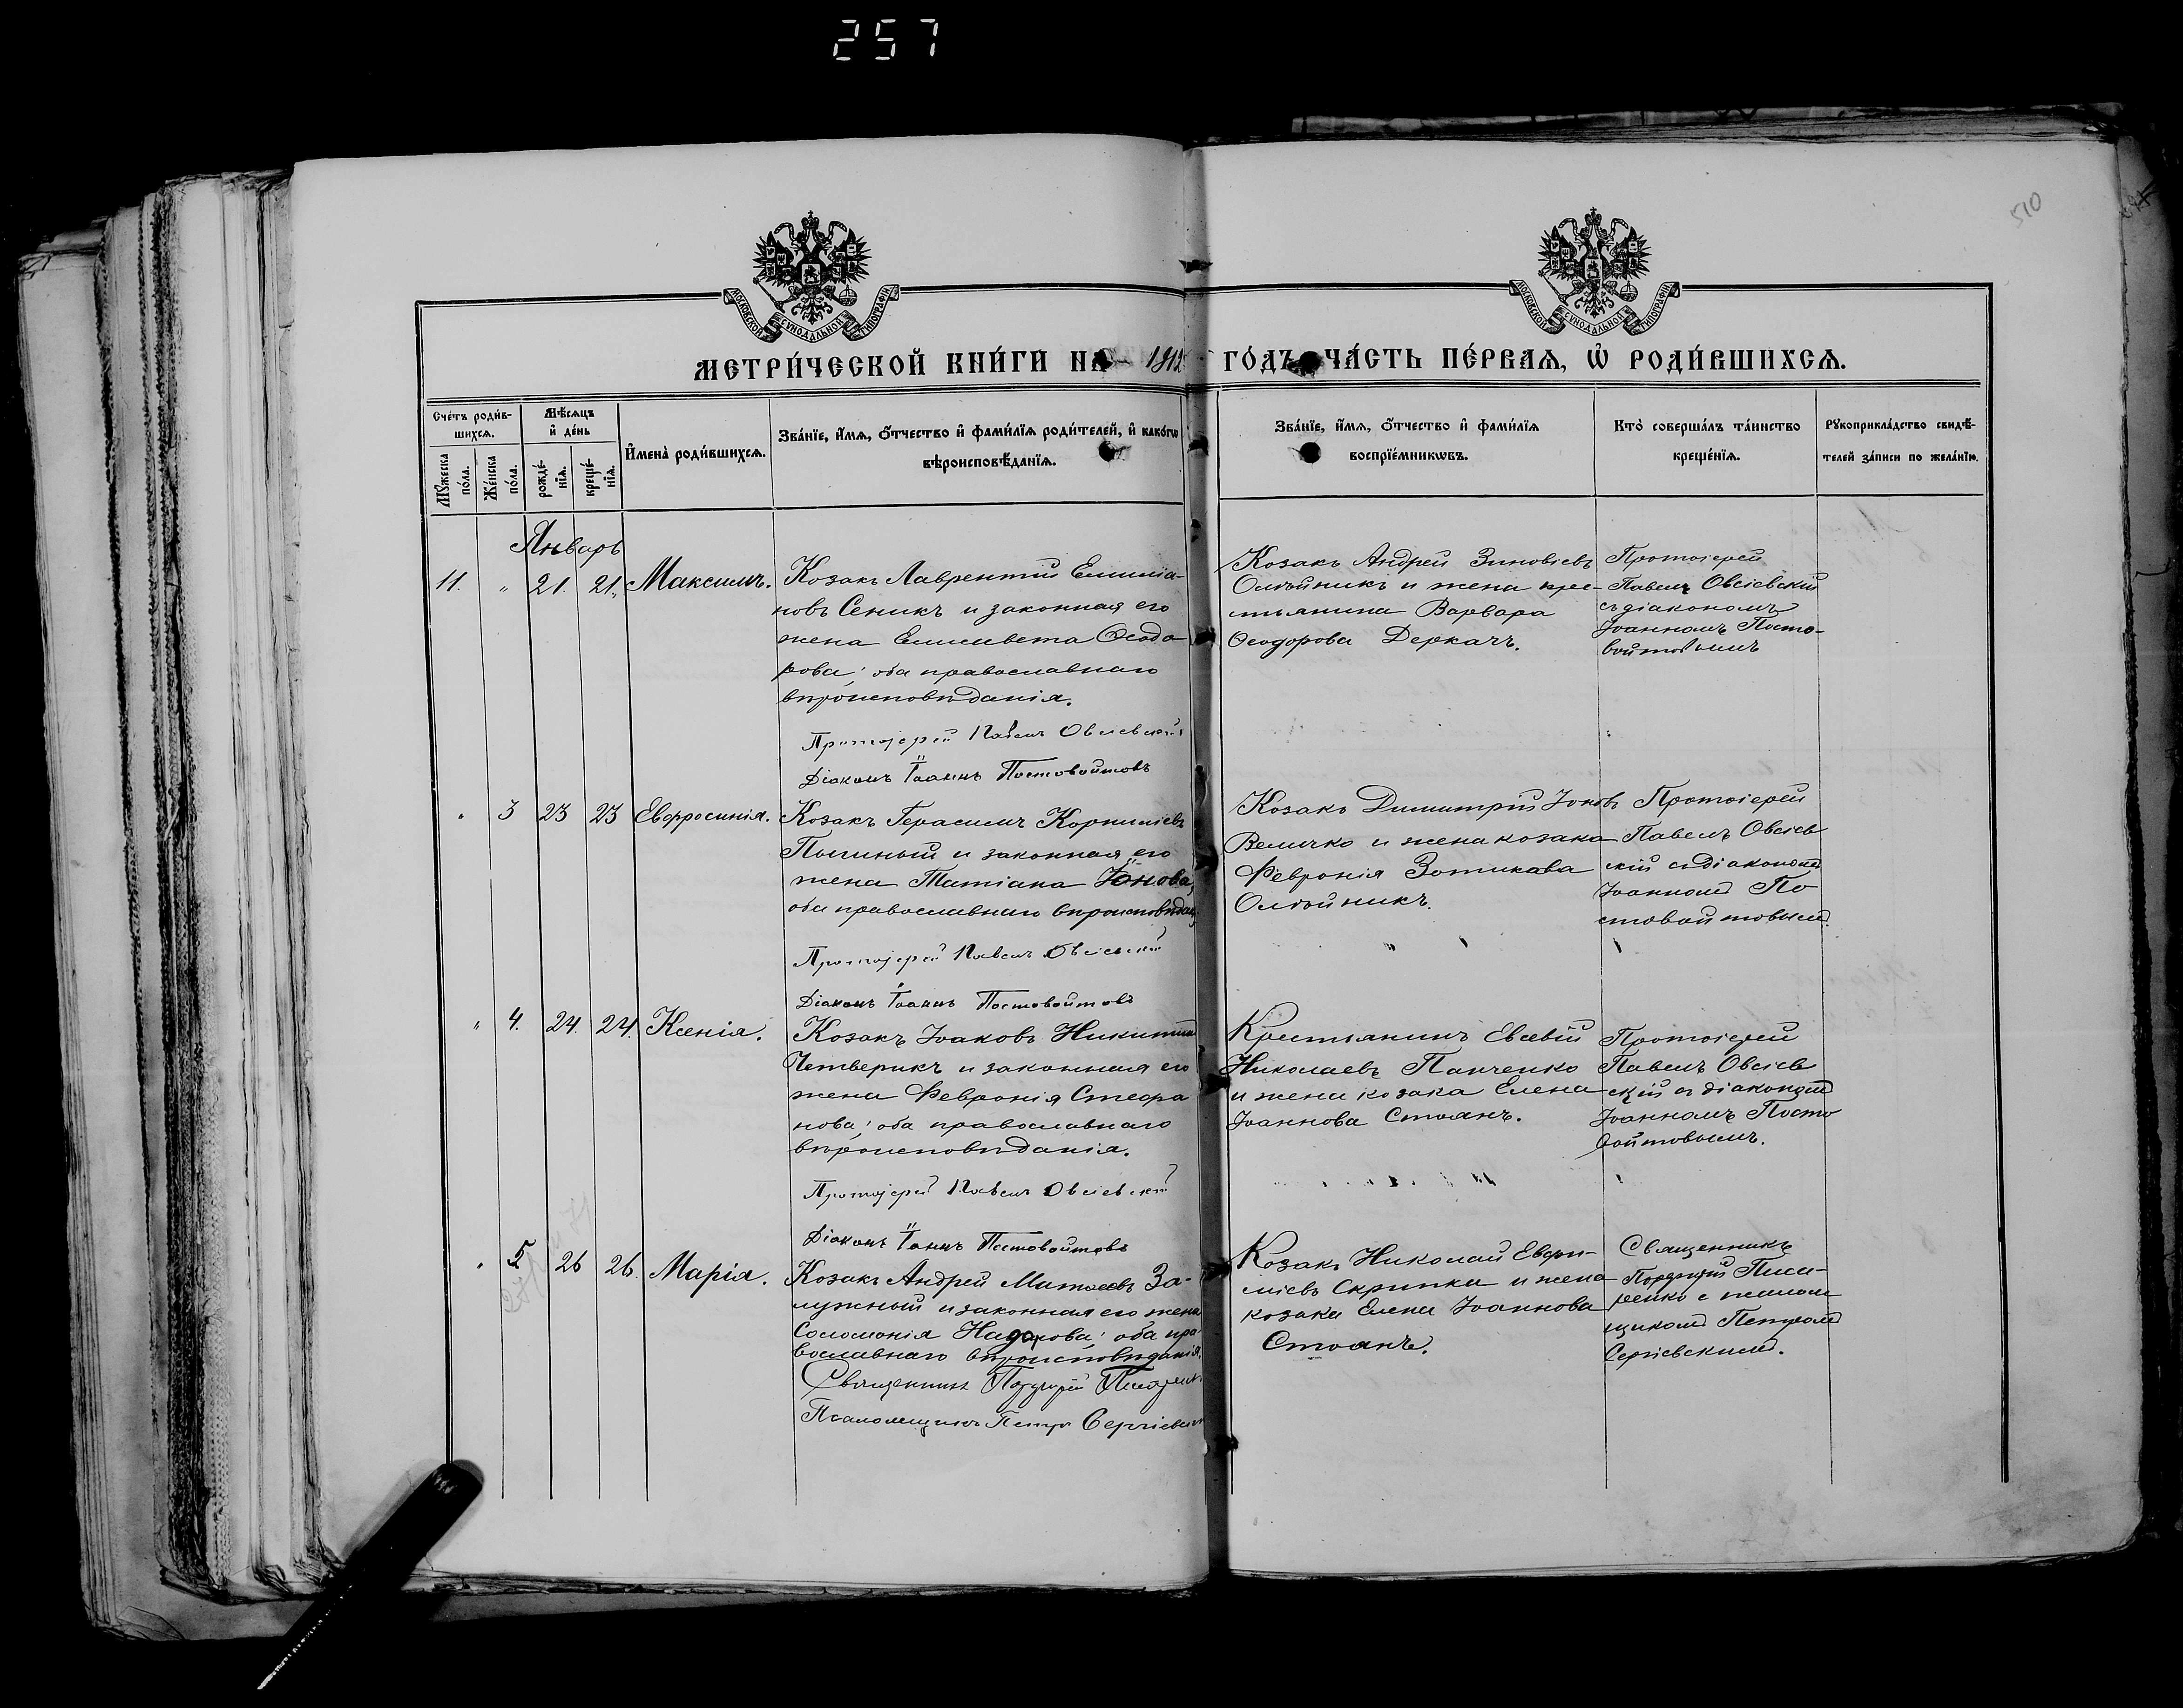 257
510
МОСКОВСКОЙ СѴНОДАЛЬНОЙ ТИПОГРАФІИ
МОСКОВСКОЙ СѴНОДАЛЬНОЙ ТИПОГРАФІИ
МЕТРИ́ЧЕСКОЙ КНИ́ГИ НА 1912 ГО́ДЪ ЧА́СТЬ ПЕ́РВАѦ, Ѡ҆ РОДИ́ВШИХСѦ.
Сче́тъ роди́в-
шихсѧ.
Мꙋ́жеска по́ла.
Же́нска по́ла.
Мѣ́сѧцъ
и҆ де́нь
рожде́-
нїѧ.
креще́-
нїѧ.
И҆мена̀ роди́вшихсѧ.
Зва́нїе, и҆́мѧ, ѻ҆́тчество и҆ фами́лїѧ роди́телей, и҆ како́гѡ
вѣроисповѣ́данїѧ.
Зва́нїе, и҆́мѧ, ѻ҆́тчество и҆ фами́лїѧ
воспрїе́мникѡвъ.
Кто̀ соверша́лъ та́инство
креще́нїѧ.
Рꙋкоприкла́дство свидѣ́-
телей за́писи по жела́нїю.
Январь
11. " 21. 21. Максимъ.
Козакъ Лаврентій Емилїа-
новъ Сеникъ и законная его
жена Елисавета Ѳеодо
рова; оба православнаго
вѣроисповѣданія.
Протоіерей Павелъ Овсіевскій
Діаконъ Іоаннъ Постовойтовъ
Козакъ Андрей Зиновіевъ
Олѣйникъ и жена кре-
стьянина Варвара
Ѳеодорова Деркачъ.
Протоіерей
Павелъ Овсіевскій
съ діакономъ
Іоанномъ Посто-
войтовымъ
" 3 23 23 Евфросинія.
Козакъ Герасимъ Корниліевъ
законная его
жена Татіана Іонова,
оба православнаго вѣроисповѣдан.
Протоіерей Павелъ Овсіевскій
Діаконъ Іоаннъ Постовойтовъ
Козакъ Димитрій Іоновъ
Величко и жена козака
Февронія Зотикова
Олѣйникъ.
Протоіерей
Павелъ Овсіев
скій съ діакономъ
Іоанномъ По
стовойтовымъ.
" 4. 24. 24. Ксенія.
Козакъ Іоаковъ Никитинъ
Четверикъ и законная его
жена Февронія Стефа
нова; оба православнаго
вѣроисповѣданія.
Протоіерей Павелъ Овсіевскій
Діаконъ Іоаннъ Постовойтовъ
Крестьянинъ Евсевій
Николаевъ Панченко
и жена козака Елена
Іоаннова Стоянъ.
Протоіерей
Павелъ Овсіев
скій съ діакономъ
Іоанномъ Посто
войтовымъ.
" 5 26 26. Марія.
Козакъ Андрей Матѳеевъ За-
лужный и законная его жена
Соломонія оба пра
вославнаго вѣроисповѣданія.
Священникъ Порфирій Писаренко
Псаломщикъ Петръ Сергіевскій
Козакъ Николай Евфи-
міевъ Скрипка и жена
козака Елена Іоаннова
Стоянъ.
Священникъ
Порфирій Писа-
ренко с псалом
щикомъ Петромъ
Сергіевскимъ.